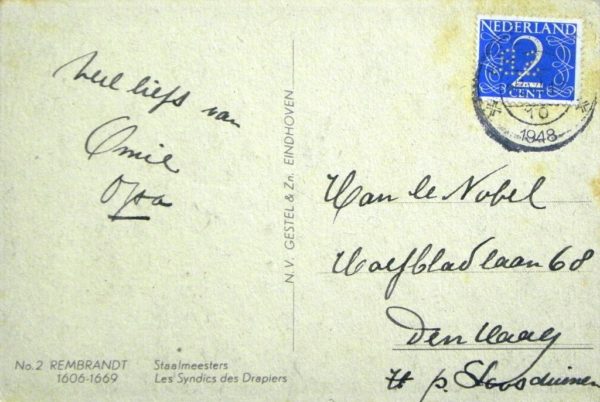 veel liefs van
Omie
Opa
N.V. GESTEL & Zn. EINDHOVEN
No.2 REMBRANDT
1606-1669
Staalmeesters
Les Syndics des Drapiers
NEDERLAND
2
CENT
10
1948
Han le Nobel
Wolfbladlaan 68
Den Haag
p. Loosduinen